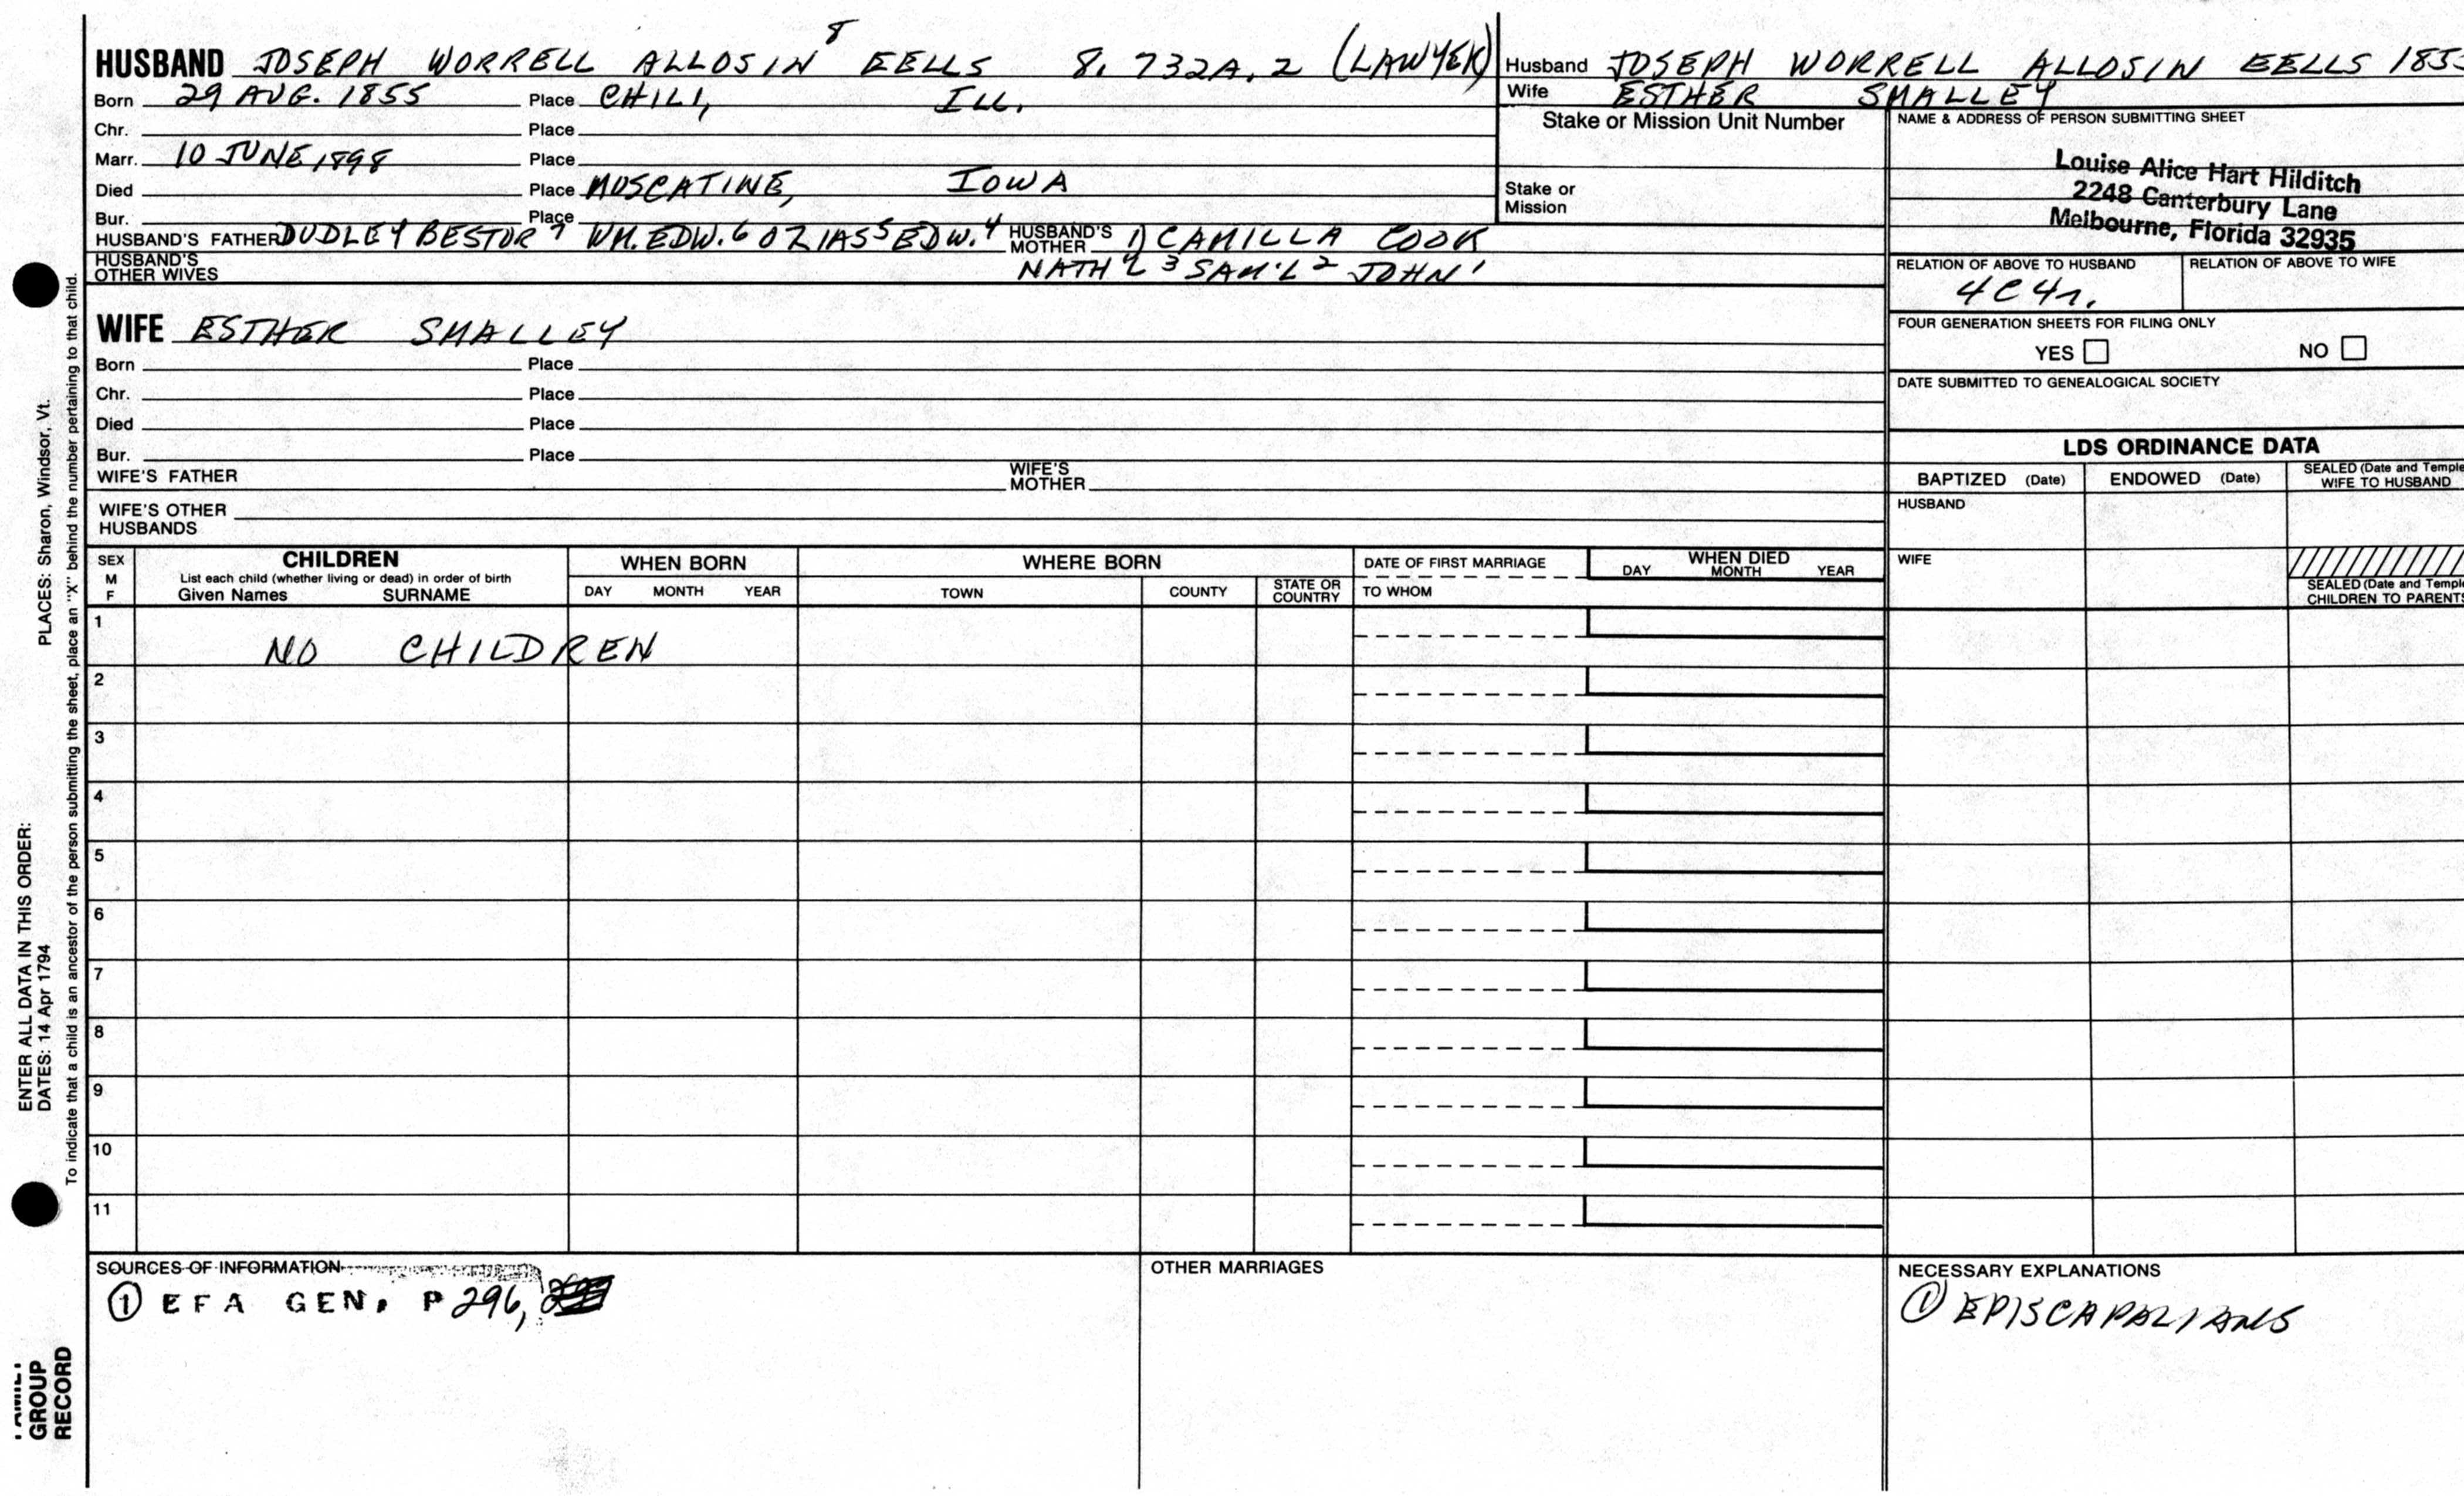 HUSBAND JOSEPH WORRELL ALLOSIN 8 EELLS 8. 732A.2 (LAWYER)
Born 29 AUG. 1855 Place CHILI, ILL.
Chr. Place
Marr. 10 JUNE, 1898 Place
Died Place MUSCATINE, IOWA
Bur. Place
HUSBAND'S FATHER DUDLEY BESTOR 7 WM. EDW. 6 OZIAS 5 EDW. 4 HUSBAND'S MOTHER 1) CAMILLA COOK
HUSBAND'S OTHER WIVES NATH'L 3 SAM'L 2 JOHN 1
WIFE ESTHER SMALLEY
Born Place
Chr. Place
Died Place
Bur. Place
WIFE'S FATHER WIFE'S MOTHER
WIFE'S OTHER HUSBANDS
Husband JOSEPH WORRELL ALLOSIN EELLS 1855
Wife ESTHER SMALLEY
Stake or Mission Unit Number
Stake or Mission
NAME & ADDRESS OF PERSON SUBMITTING SHEET
Louise Alice Hart Hilditch
2248 Canterbury Lane
Melbourne, Florida 32935
RELATION OF ABOVE TO HUSBAND RELATION OF ABOVE TO WIFE
4C4r.
FOUR GENERATION SHEETS FOR FILING ONLY
YES NO
DATE SUBMITTED TO GENEALOGICAL SOCIETY
LDS ORDINANCE DATA
BAPTIZED (Date) ENDOWED (Date) SEALED (Date and Temple WIFE TO HUSBAND
HUSBAND
WIFE
SEALED (Date and Temple
CHILDREN TO PARENTS
SEX M F
CHILDREN
List each child (whether living or dead) in order of birth
Given Names SURNAME
WHEN BORN
DAY MONTH YEAR
WHERE BORN
TOWN COUNTY STATE OR COUNTRY
DATE OF FIRST MARRIAGE
TO WHOM
WHEN DIED
DAY MONTH YEAR
1
NO CHILDREN
2
3
4
5
6
7
8
9
10
11
SOURCES OF INFORMATION
① EFA GEN. P 296,
OTHER MARRIAGES
NECESSARY EXPLANATIONS
① EPISCAPALIANS
ENTER ALL DATA IN THIS ORDER:
DATES: 14 Apr 1794 PLACES: Sharon, Windsor, Vt.
To indicate that a child is an ancestor of the person submitting the sheet, place an "X" behind the number pertaining to that child.
FAMILY
GROUP
RECORD